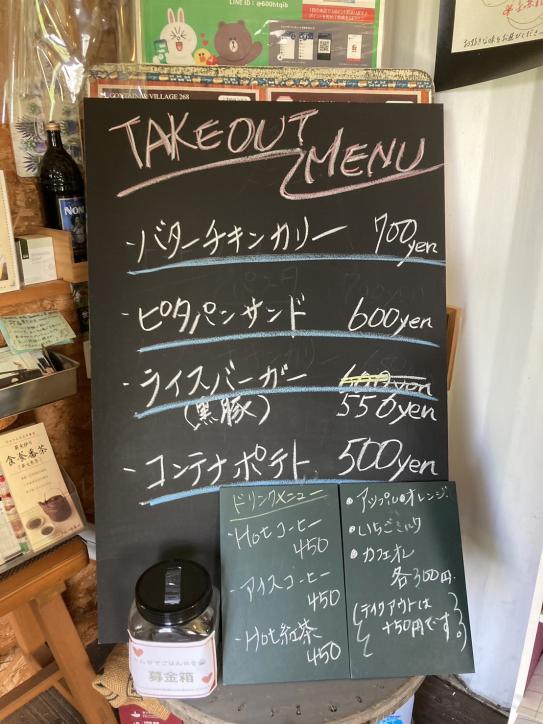 LINE ID : @600htqib
CONTAINER VILLAGE 268
TAKEOUT MENU
・バターチキンカリー 700yen
・ピタパンサンド 600yen
・ライスバーガー 600yen
(黒豚) 550yen
・コンテナポテト 500yen
ドリンクメニュー
・Hotコーヒー
450
・アイスコーヒー
450
・Hot紅茶
450
・アップル・オレンジ
・いちごミルク
・カフェオレ
各300円
(テイクアウトは
+50円です。)
食養番茶
募金箱